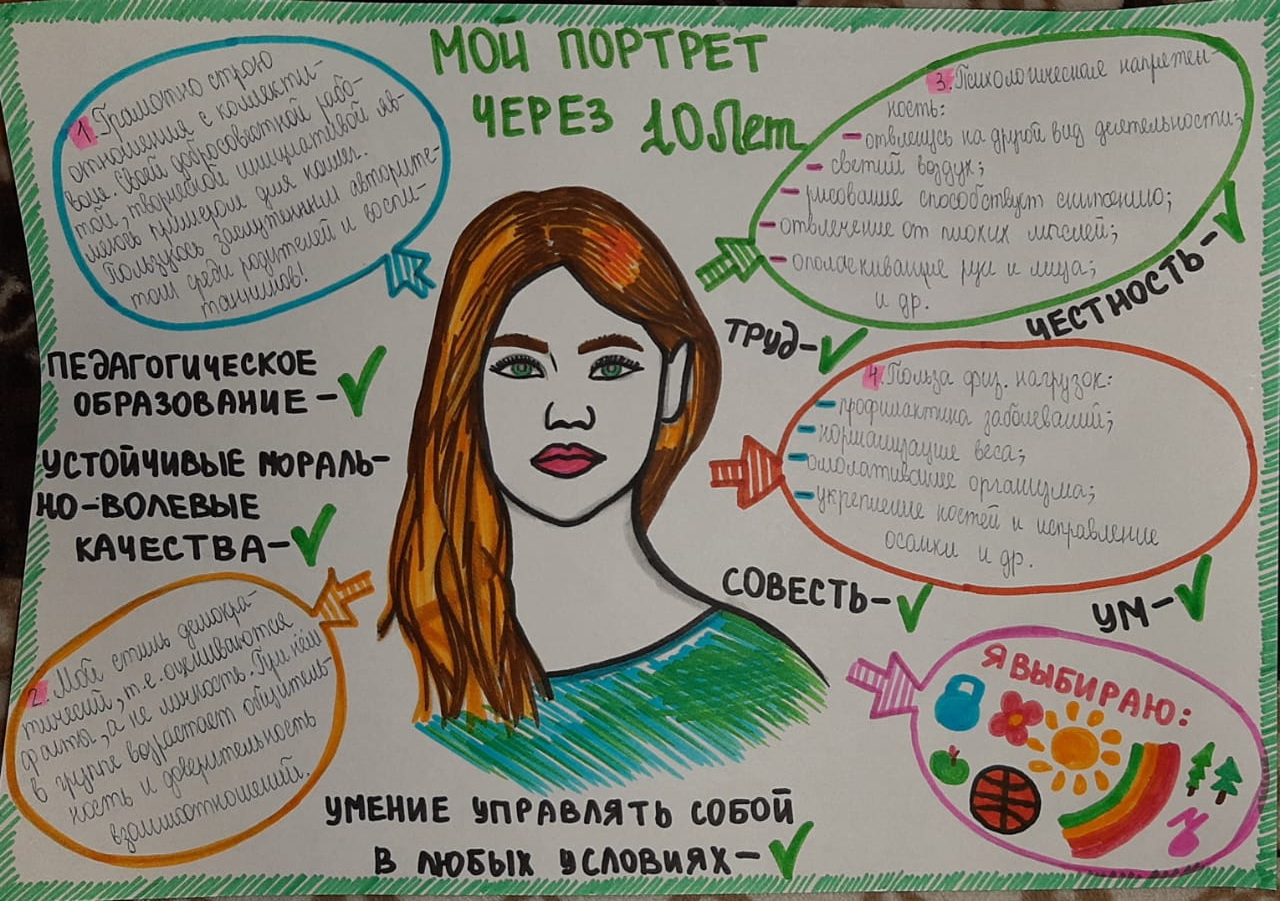 МОЙ ПОРТРЕТ
ЧЕРЕЗ 10 Лет
1. Грамотно строю
отношения с коллекти-
вом. Своей добросовестной рабо-
той, творческой инициативой яв-
ляюсь примером для коллег.
Пользуюсь заслуженным авторите-
том среди родителей и воспи-
танников!
ПЕДАГОГИЧЕСКОЕ
ОБРАЗОВАНИЕ –
УСТОЙЧИВЫЕ МОРАЛЬ-
НО-ВОЛЕВЫЕ
КАЧЕСТВА –
2. Мой стиль демокра-
тический, т.е. оцениваются
факты, а не личность. При нём
в группе возрастает общитель-
ность и доверительность
взаимоотношений.
3. Психологическая напряжен-
ность:
- отвлекусь на другой вид деятельности;
- свежий воздух;
- рисование способствует снятию;
- отвлечение от плохих мыслей;
- ополаскивание рук и лица;
и др.
ЧЕСТНОСТЬ –
ТРУД –
4. Польза физ. нагрузок:
- профилактика заболеваний;
- нормализация веса;
- омолаживание организма;
- укрепление костей и исправление
осанки и др.
СОВЕСТЬ –
УМ –
Я ВЫБИРАЮ:
УМЕНИЕ УПРАВЛЯТЬ СОБОЙ
В ЛЮБЫХ УСЛОВИЯХ –